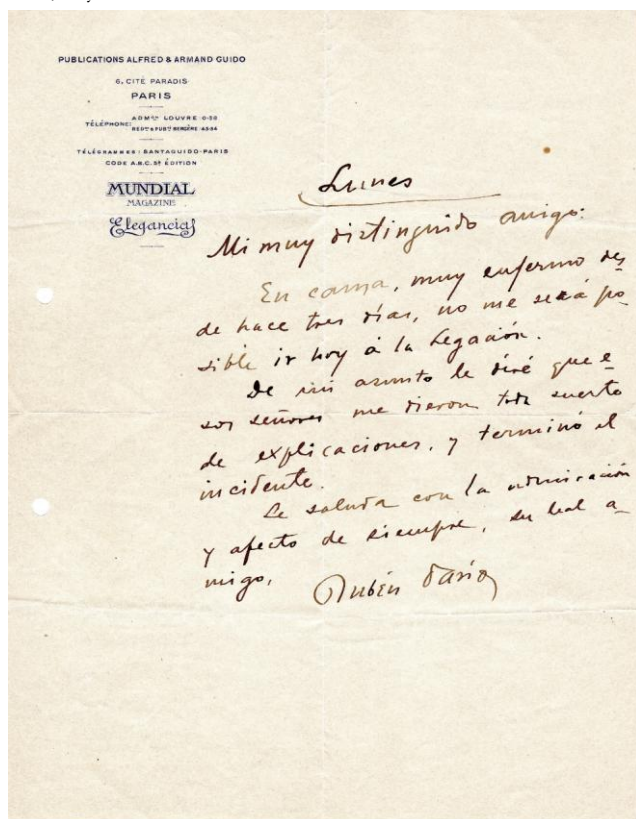 PUBLICATIONS ALFRED & ARMAND GUIDO
6, CITÉ PARADIS
PARIS
TÉLÉPHONE: ADMon LOUVRE 0-58
REDon & PUBté BERGÈRE 43-34
TÉLÉGRAMMES: SANTAGUIDO-PARIS
CODE A.B.C. 5e ÉDITION
MUNDIAL
MAGAZINE
Elegancias
Lunes
Mi muy distinguido amigo:
En cama, muy enfermo des
de hace tres días, no me será po
sible ir hoy á la Legación.
De mi asunto le diré que e-
sos señores me dieron toda suerte
de explicaciones, y terminó el
incidente.
Le saluda con la admiración
y afecto de siempre, su leal a-
migo,
Rubén Darío